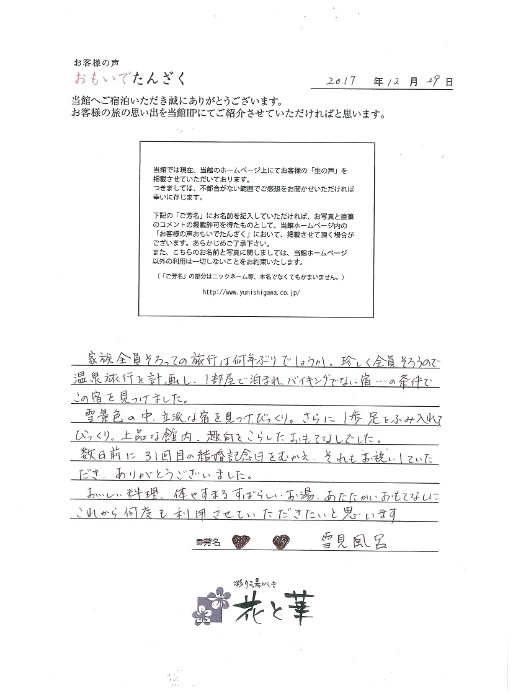 お客様の声
おもいでたんざく
2017 年 12 月 29 日
当館へご宿泊いただき誠にありがとうございます。
お客様の旅の思い出を当館HPにてご紹介させていただければと思います。
当館では現在、当館のホームページ上にてお客様の「生の声」を
掲載させていただいております。
つきましては、不都合がない範囲でご感想をお聞かせいただければ
幸いに存じます。
下記の「ご芳名」にお名前を記入していただければ、お写真と直筆
のコメントの掲載許可を得たものとして、当館ホームページ内の
「お客様の声おもいでたんざく」において、掲載させて頂く場合が
ございます。あらかじめご了承下さい。
また、こちらのお名前と写真に関しましては、当館ホームページ
以外の利用は一切しないことをお約束いたします。
（「ご芳名」の部分はニックネーム等、本名でなくてもかまいません。）
http://www.yunishigawa.co.jp/
家族全員そろっての旅行は何年ぶりでしょうか。珍しく全員そろうので
温泉旅行を計画し、1部屋で泊まれ、バイキングでない宿…の条件で
この宿を見つけました。
雪景色の中、立派な宿を見つけびっくり。さらに1歩足をふみ入れて
びっくり。上品な館内、趣向をこらしたおもてなしでした。
数日前に31回目の結婚記念日をむかえ、それもお祝いしていた
だき、ありがとうございました。
おいしい料理、体やすまるすばらしいお湯、あたたかいおもてなしに
これから何度も利用させていただきたいと思います
ご芳名 雪見風呂
彩り湯かしき
花と華